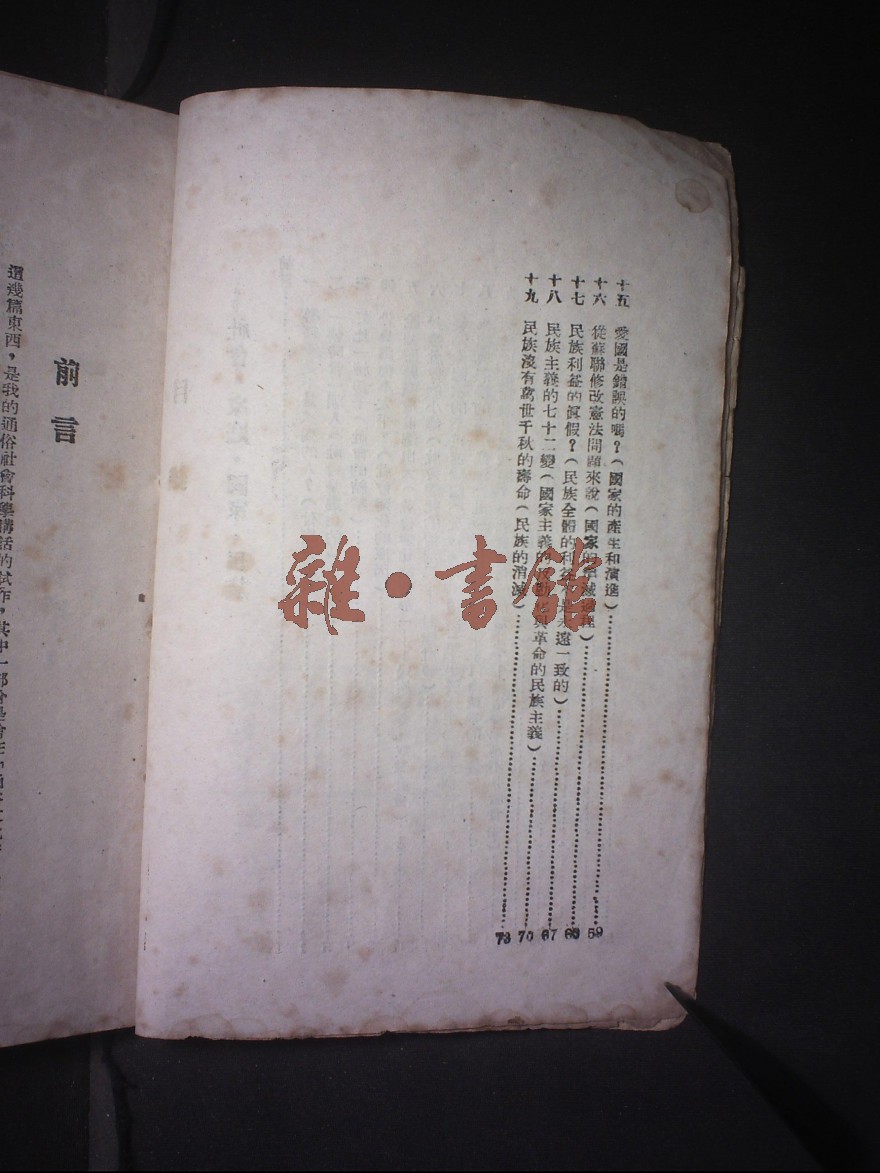 十五 愛國是錯誤的嗎?(國家的產生和演進)……59
十六 從蘇聯修改憲法問題來說(國家的 滅過程)……63
十七 民族利益的眞假?(民族全體的利益 是永遠一致的)……67
十八 民族主義的七十二變(國家主義的 與革命的民族主義)……70
十九 民族沒有萬世千秋的壽命(民族的消滅)……73
前言
這幾篇東西,是我的通俗社會科學講話的試作,其中一部
雜·書館